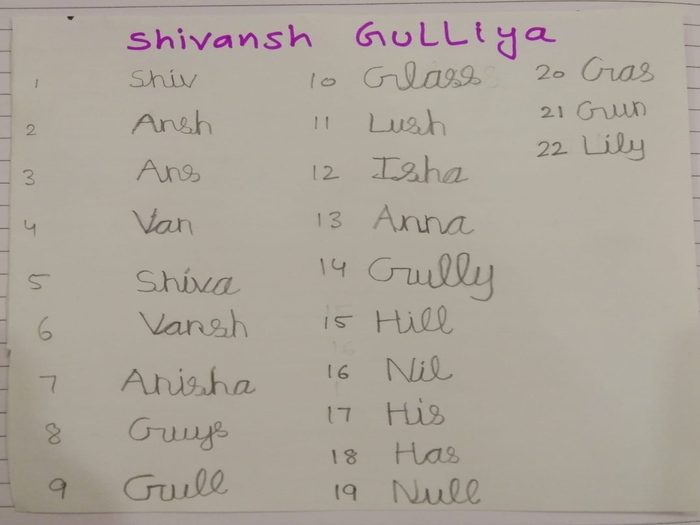 Shivansh GULLiya
1 Shiv
2 Ansh
3 Ans
4 Van
5 Shiva
6 Vansh
7 Anisha
8 Guys
9 Gull
10 Glass
11 Lush
12 Isha
13 Anna
14 Gully
15 Hill
16 Nil
17 His
18 Has
19 Null
20 Gas
21 Gun
22 Lily